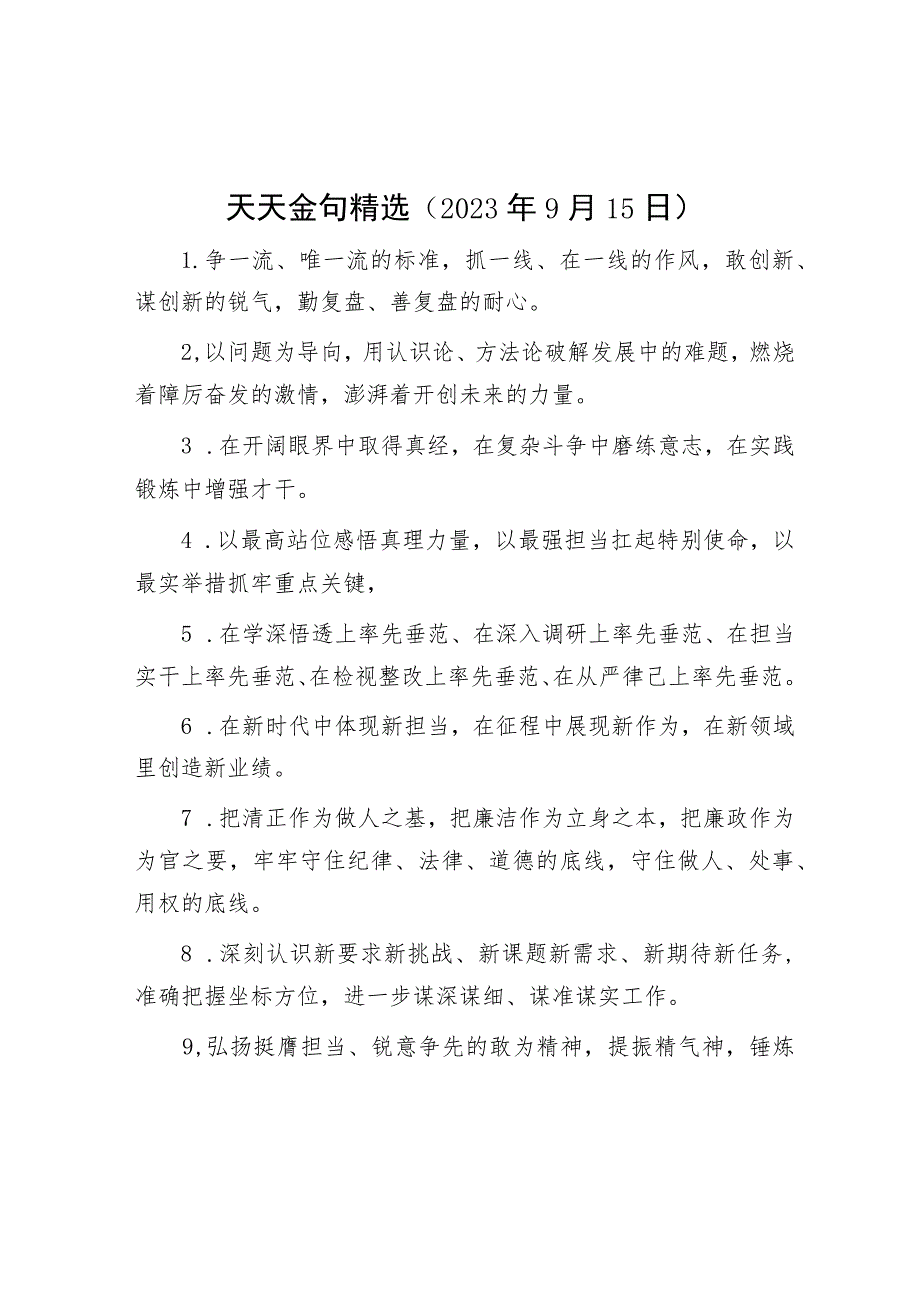 天天金句精选（2023 年 9 月 15 日）
1.争一流、唯一流的标准，抓一线、在一线的作风，敢创新、
谋创新的锐气，勤复盘、善复盘的耐心。
2,以问题为导向，用认识论、方法论破解发展中的难题，燃烧
着障厉奋发的激情，澎湃着开创未来的力量。
3 .在开阔眼界中取得真经，在复杂斗争中磨练意志，在实践
锻炼中增强才干。
4 .以最高站位感悟真理力量，以最强担当扛起特别使命，以
最实举措抓牢重点关键，
5 .在学深悟透上率先垂范、在深入调研上率先垂范、在担当
实干上率先垂范、在检视整改上率先垂范、在从严律己上率先垂范。
6 .在新时代中体现新担当，在征程中展现新作为，在新领域
里创造新业绩。
7 .把清正作为做人之基，把廉洁作为立身之本，把廉政作为
为官之要，牢牢守住纪律、法律、道德的底线，守住做人、处事、
用权的底线。
8 .深刻认识新要求新挑战、新课题新需求、新期待新任务，
准确把握坐标方位，进一步谋深谋细、谋准谋实工作。
9,弘扬挺膺担当、锐意争先的敢为精神，提振精气神，锤炼